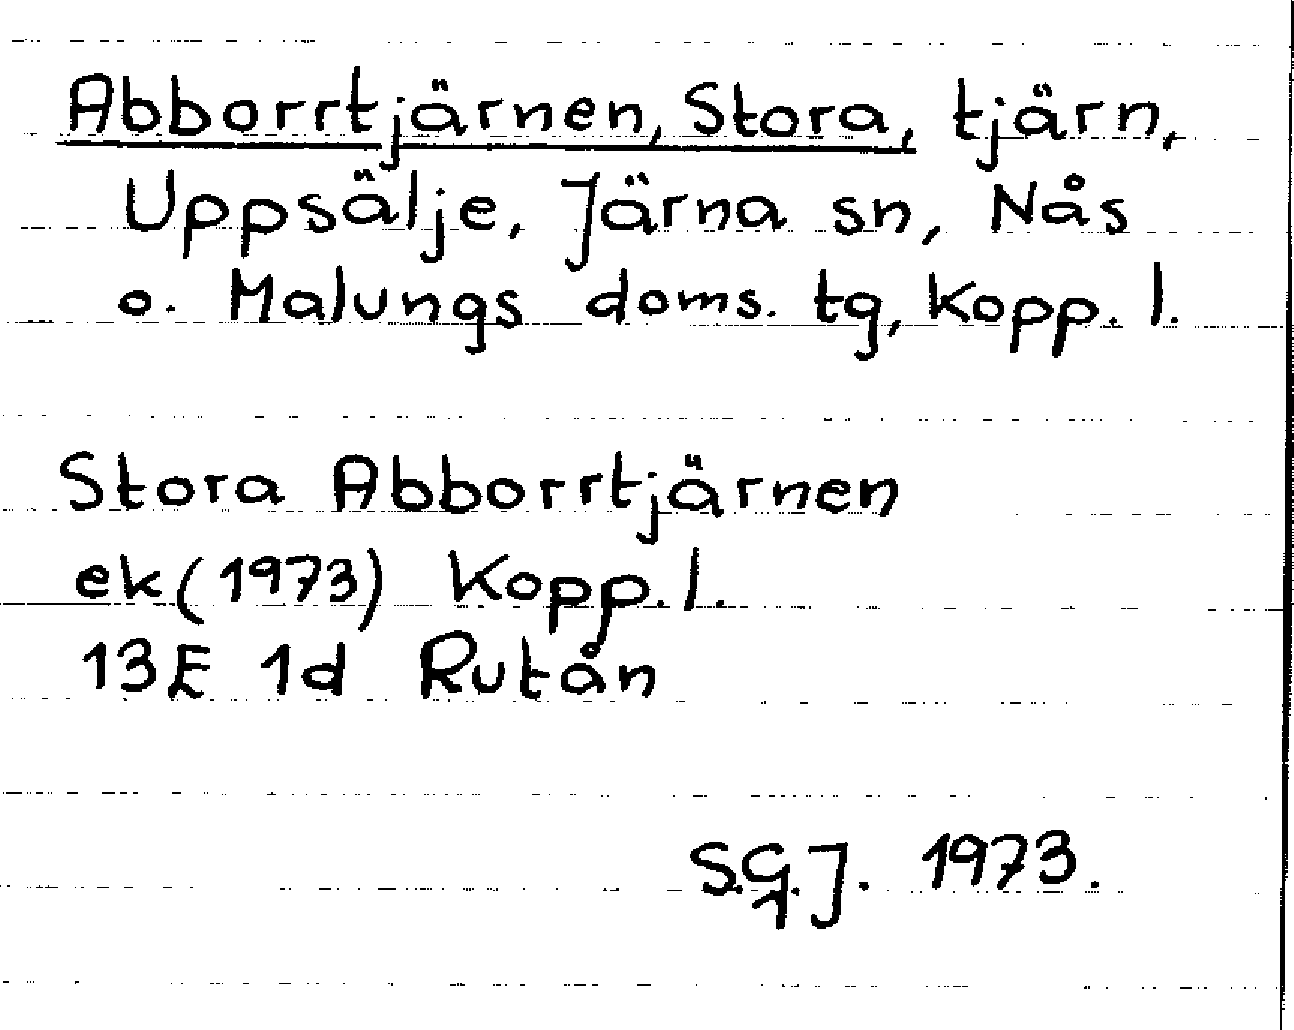 Abborrtjärnen, Stora, tjärn,
Uppsälje, Järna sn, Nås
o. Malungs doms. tg, Kopp. l.
Stora Abborrtjärnen
ek (1973) Kopp. l.
13E 1d Rutån
S.G.J. 1973.